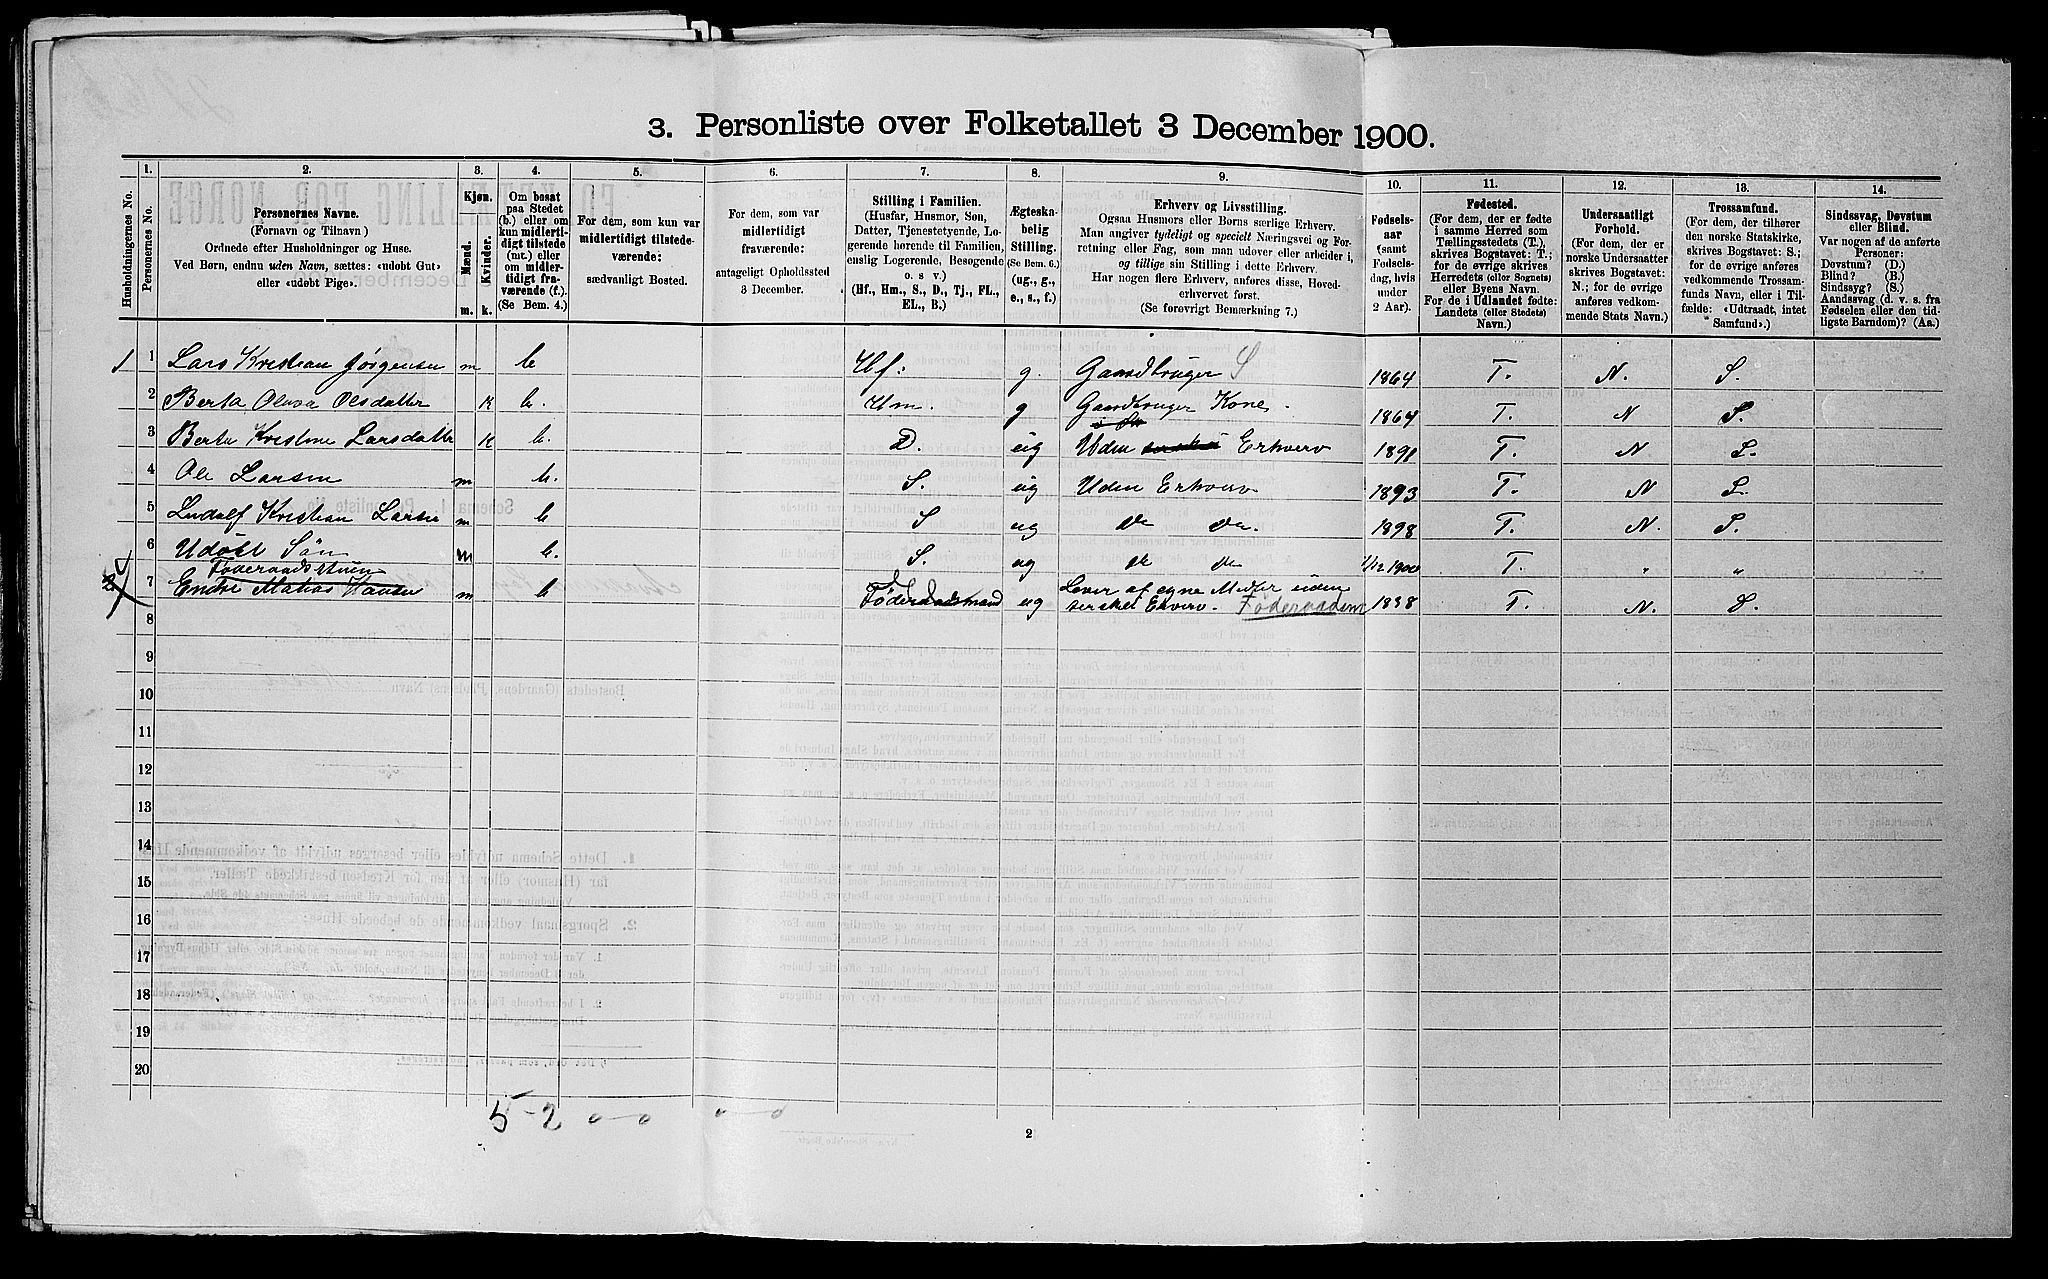 3. Personliste over Folketallet 3 December 1900.
1. 2. 3. 4. 5. 6. 7. 8. 9. 10. 11. 12. 13. 14.
Husholdningernes No.
Personernes No.
Personernes Navne.
(Fornavn og Tilnavn)
Ordnede efter Husholdninger og Huse.
Ved Børn, endnu uden Navn, sættes: «udøbt Gut»
eller «udøbt Pige».
Kjøn.
Mænd.
Kvinder.
m. k.
Om bosat
paa Stedet
(b.) eller om
kun midlerti-
digt tilstede
(mt.) eller
om midler-
tidigt fra-
værende (f.).
(Se Bem. 4.)
For dem, som kun var
midlertidigt tilstede-
værende:
sædvanligt Bosted.
For dem, som var
midlertidigt
fraværende:
antageligt Opholdssted
3 December.
Stilling i Familien.
(Husfar, Husmor, Søn,
Datter, Tjenestetyende, Lo-
gerende hørende til Familien,
enslig Logerende, Besøgende
o. s v.)
(Hf., Hm., S., D., Tj., FL.,
EL., B.)
Ægteska-
belig
Stilling.
(Se Bem. 6.)
(ug., g.,
e., s., f.)
Erhverv og Livsstilling.
Ogsaa Husmors eller Børns særlige Erhverv.
Man angiver tydeligt og specielt Næringsvei og For-
retning eller Fag, som man udover eller arbeider i,
og tillige sin Stilling i dette Erhverv.
Har nogen flere Erhverv, anføres disse, Hoved-
erhvervet først.
(Se forøvrigt Bemærkning 7.)
Fødsels-
aar
(samt
Fødsels-
dag, hvis
under
2 Aar).
Fødested.
(For dem, der er fødte
i samme Herred som
Tællingsstedets (T.),
skrives Bogstavet: T.;
for de øvrige skrives
Herredets (eller Sognets)
eller Byens Navn.
For de i Udlandet fødte:
Landets (eller Stedets)
Navn.)
Undersaatligt
Forhold.
(For dem, der er
norske Undersaatter
skrives Bogstavet:
N.; for de øvrige
anføres vedkom-
mende Stats Navn.)
Trossamfund.
(For dem, der tilhører
den norske Statskirke,
skrives Bogstavet: S.;
for de øvrige anføres
vedkommende Trossam-
funds Navn, eller i Til-
fælde: «Udtraadt, intet
Samfund».)
Sindssvag, Døvstum
eller Blind.
Var nogen af de anførte
Personer:
Døvstum? (D.)
Blind? (B.)
Sindssyg? (S.)
Aandssvag (d. v. s. fra
Fødselen eller den tid-
ligste Barndom)? (Aa.)
1 1 Lars Kristian Jørgensen m b Hf: g. Gaardbruger S 1864 T. N. S.
2 Berta Oluva Olsdatter K b. Hm. g Gaardbruger Kone. 1864 T. N S.
3 Berta Kristine Larsdatter K b. D. ug Uden Erhverv 1890 T. N S.
4 Ole Larsen m b. S. ug Uden Erhverv 1893 T. N S.
5 Ludolf Kristian Larsen m b S ug de de. 1898 T. N. S.
6 Udöbt Sön m b. S. ug de de 1/12 1900 T. " "
Föderaadsstuen
7 Endre Matias Hansen m b Föderaadsmand ug Lever af egne Midler uden
serskel Ehverv. Föderaadem 1838 T. N. S.
8
9
10
11
12
13
14
15
16
17
18
19
20
5-2 0-0 0-0
2